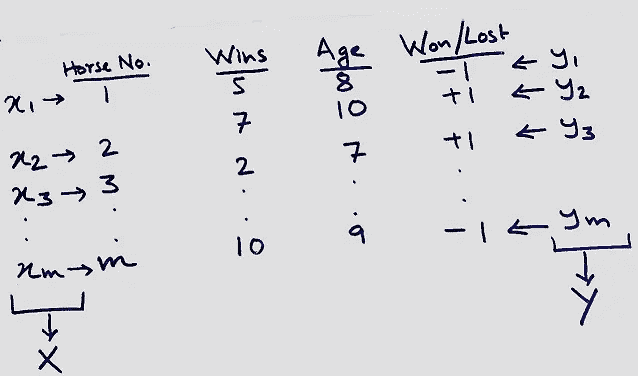 Horse No. Wins Age Won/Lost
x1 → 1 5 8 -1 ← y1
7 10 +1 ← y2
x2 → 2 2 7 +1 ← y3
x3 → 3 . . .
. . . . .
xm → m 10 9 -1 ← ym
↓ ↓
X Y